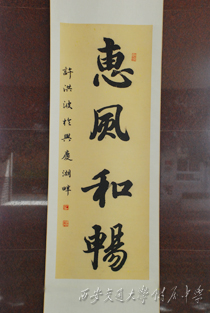 惠風和暢
許洪波於興慶湖畔
西安交通大学附属中学